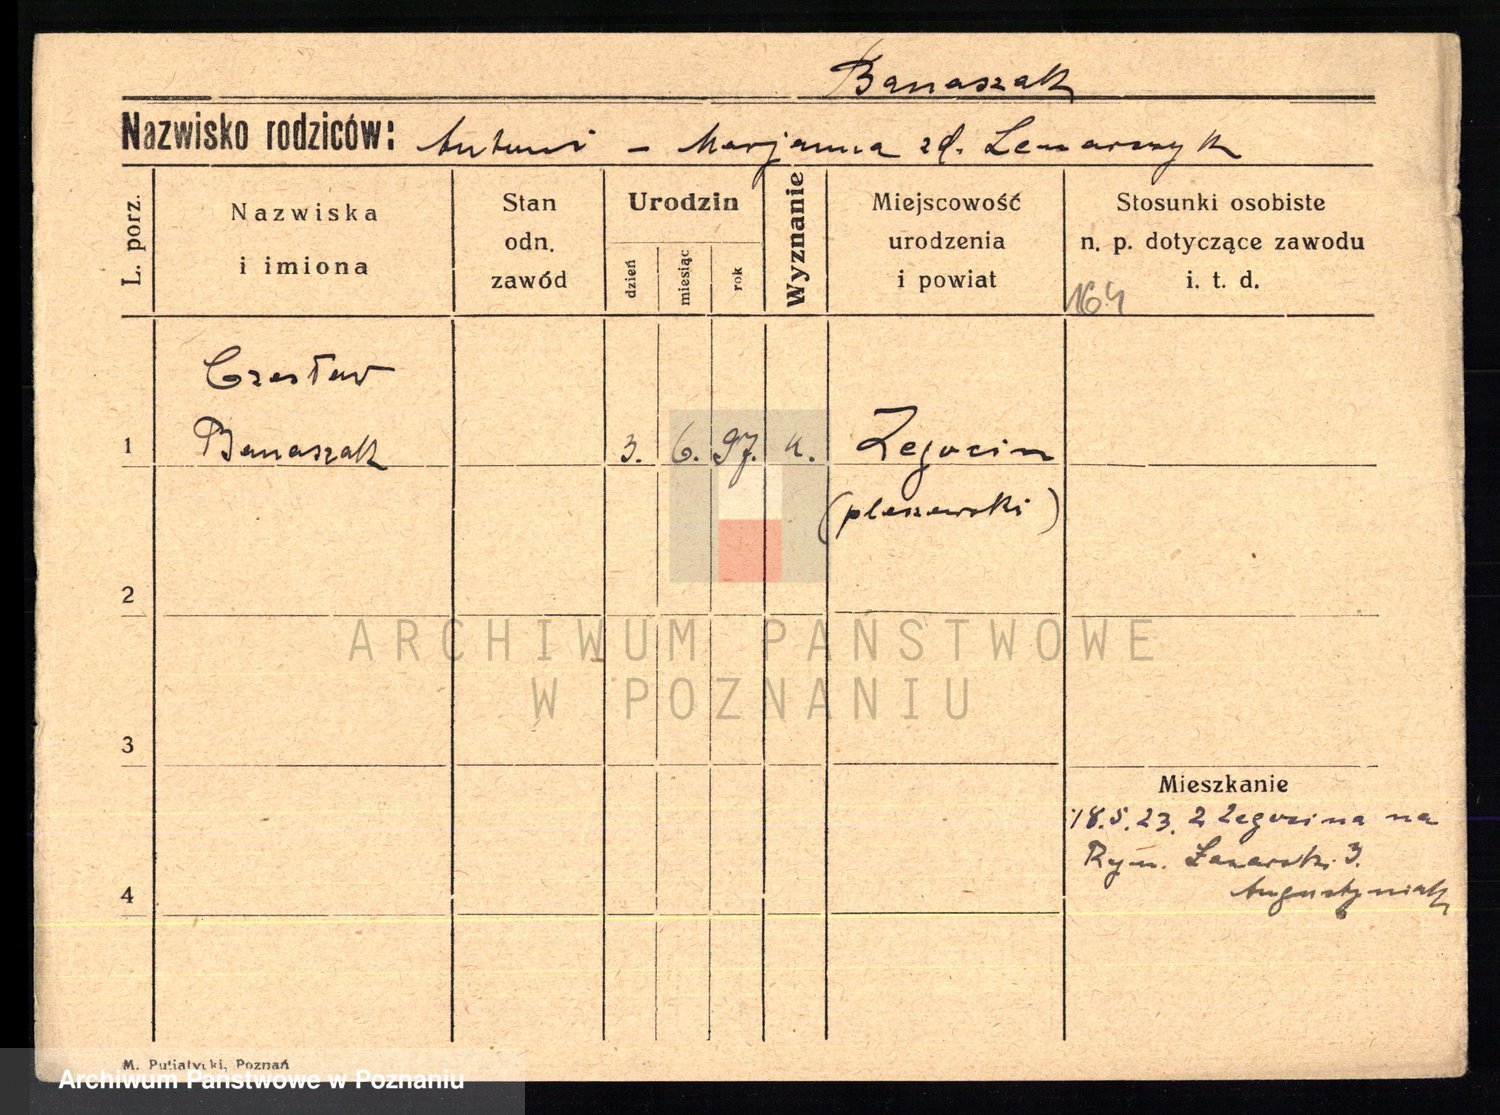 Banaszak
Nazwisko rodziców: Antoni – Marjanna zd. Lenarczyk
L. porz.
Nazwiska
i imiona
Stan
odn.
zawód
Urodzin
dzień
miesiąc
rok
Wyznanie
Miejscowość
urodzenia
i powiat
Stosunki osobiste
n. p. dotyczące zawodu
i. t. d.
164
Czesław
1 Banaszak 3. 6. 97. k. Żegocin
(pleszewski)
2
ARCHIWUM PAŃSTWOWE
W POZNANIU
3
Mieszkanie
18.5.23. z Żegocina na
Ryn. Łazarski 3.
4 Augustyniak
M. Putiatycki, Poznań
Archiwum Państwowe w Poznaniu